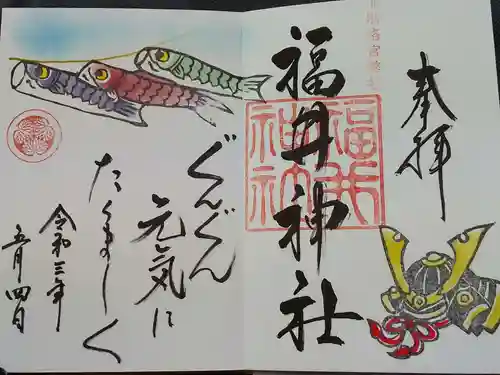 奉拝
福井神社
福井
神社
ぐんぐん
元気に
たくましく
令和三年
五月四日